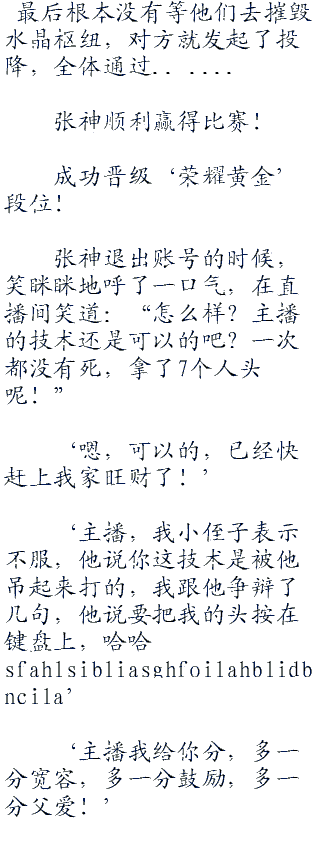 最后根本没有等他们去摧毁
水晶枢纽，对方就发起了投
降，全体通过．．．．．．
张神顺利赢得比赛！
成功晋级‘荣耀黄金’
段位！
张神退出账号的时候，
笑眯眯地呼了一口气，在直
播间笑道：“怎么样？主播
的技术还是可以的吧？一次
都没有死，拿了7个人头
呢！”
‘嗯，可以的，已经快
赶上我家旺财了！’
‘主播，我小侄子表示
不服，他说你这技术是被他
吊起来打的，我跟他争辩了
几句，他说要把我的头按在
键盘上，哈哈
sfahlsibliasghfoilahblidb
ncila’
‘主播我给你分，多一
分宽容，多一分鼓励，多一
分父爱！’